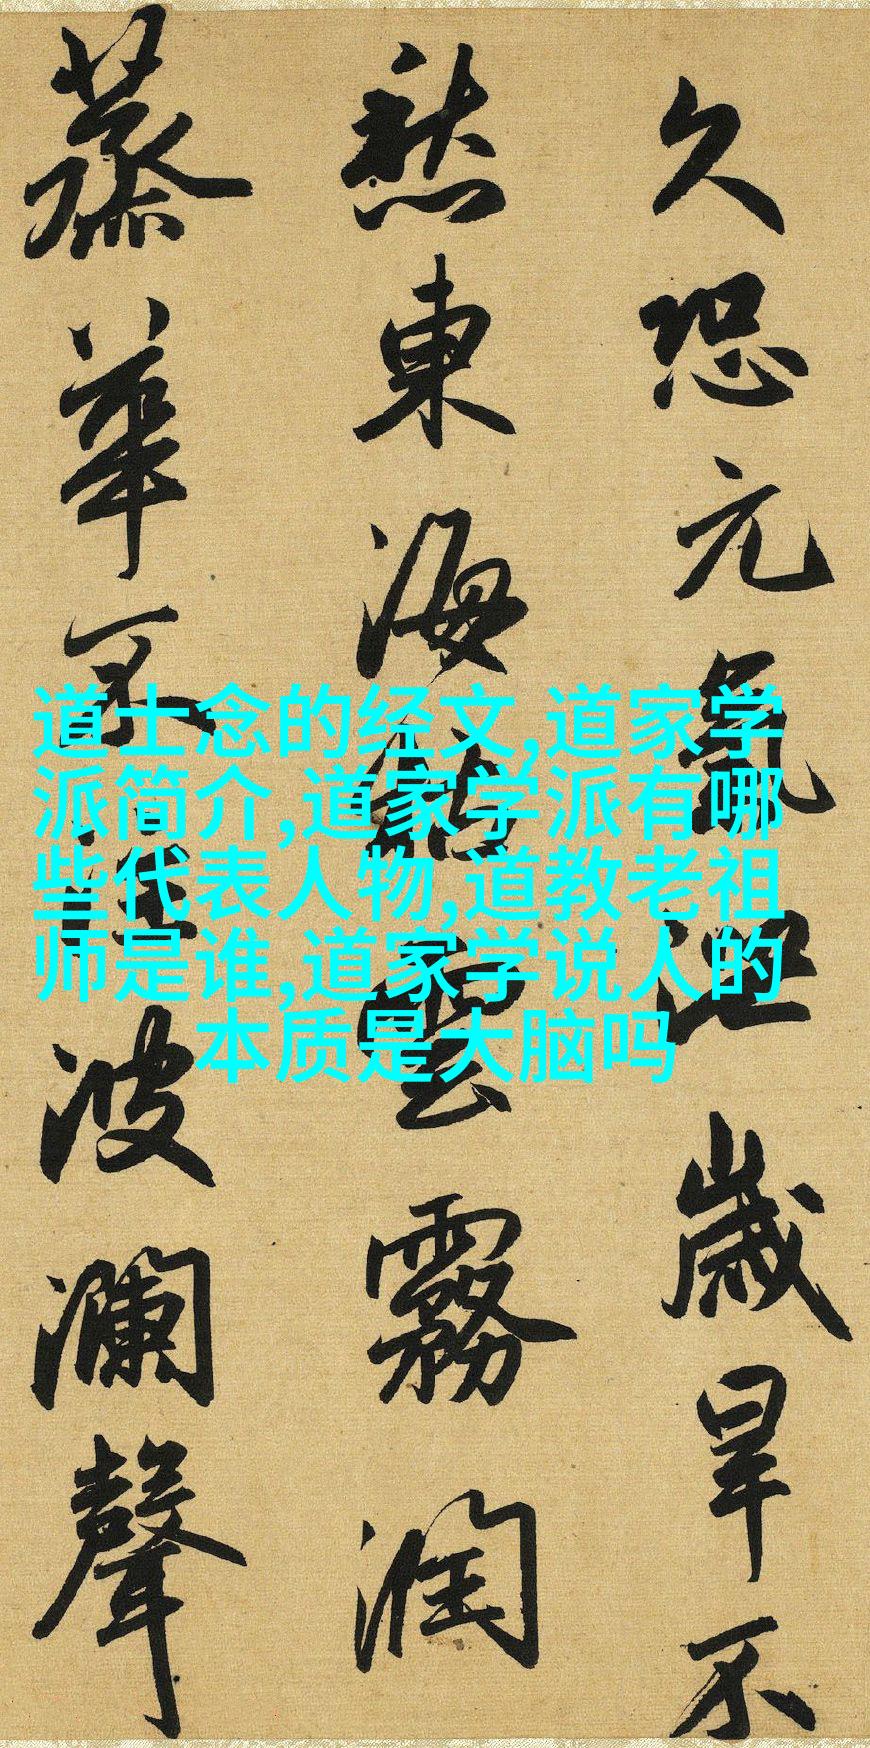 久恐元氣泄歲旱不
愁東海枯雲霧潤
蒸華不注波瀾聲
道士念的经文,道家学
派简介,道家学派有哪
些代表人物,道教老祖
师是谁,道家学说人的
本质是大脑吗